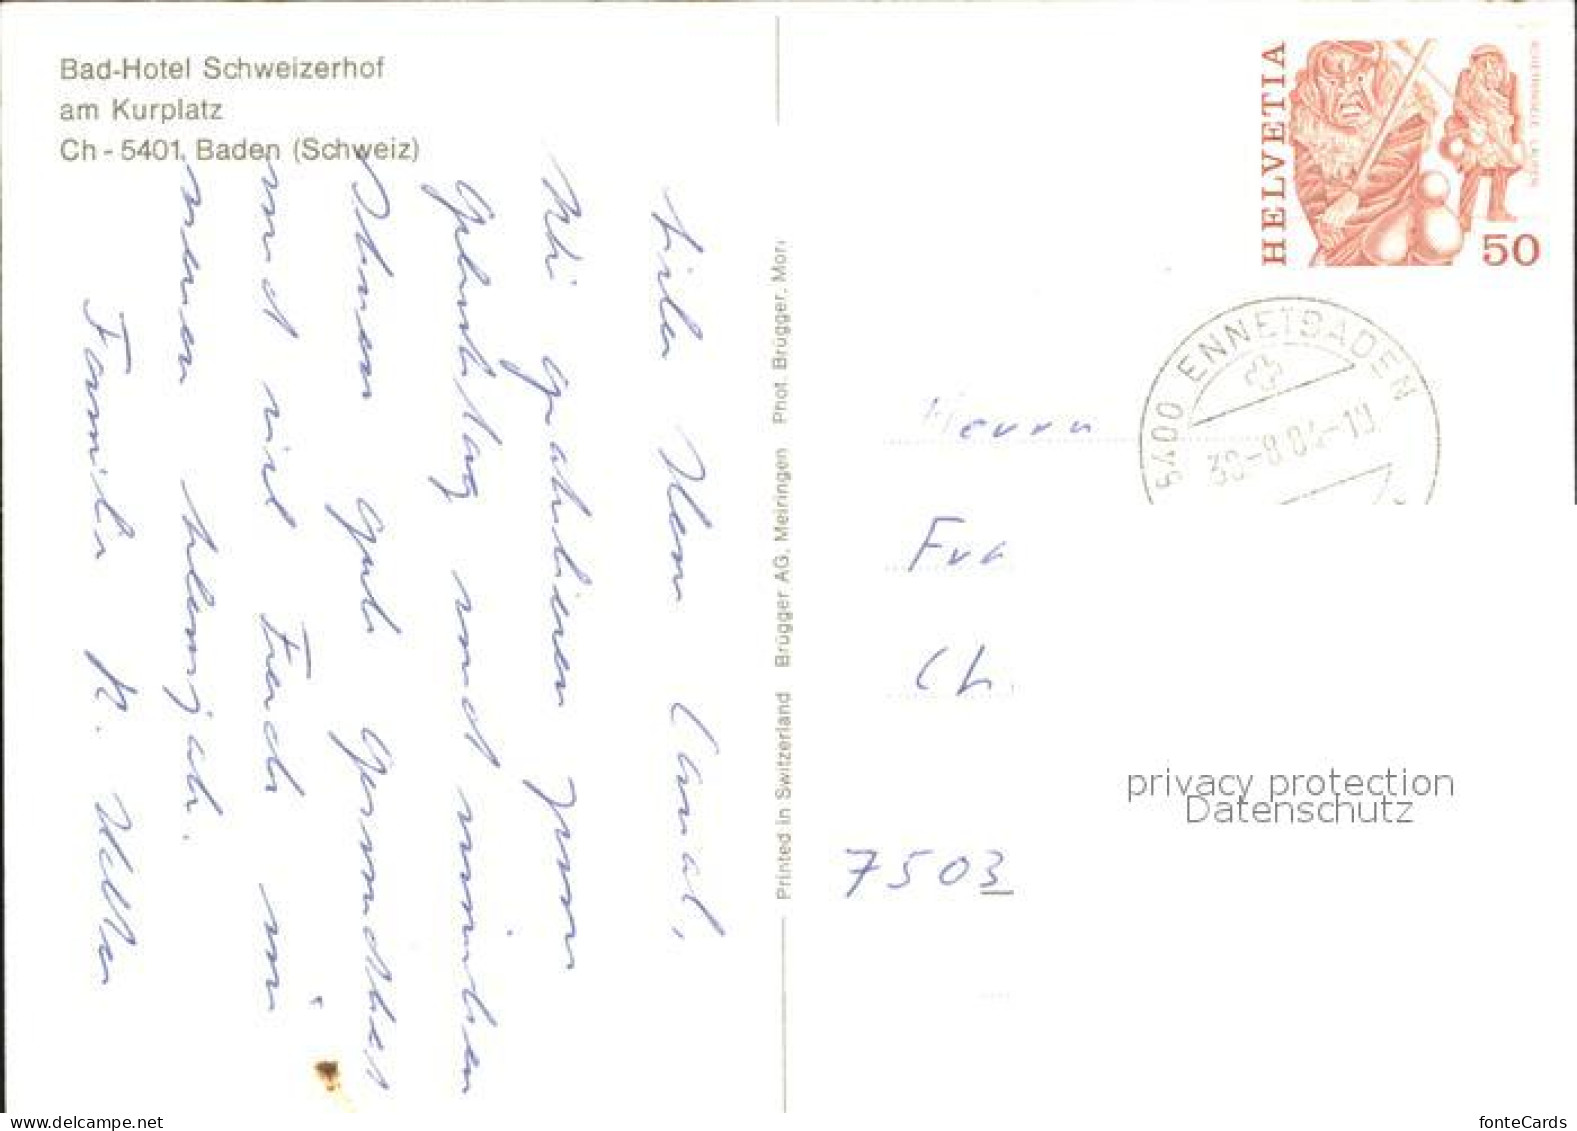 Bad-Hotel Schweizerhof
am Kurplatz
Ch - 5401 Baden (Schweiz)
Lieber Herr Caual,
Wir gratulieren zum
Geburtstag und wünschen
Ihnen gute Gesundheit
und viel Freude im
neuen Lebensjahr.
Familie K. Keller
Printed in Switzerland Brügger AG, Meiringen Phot. Brügger, Mori
HELVETIA
50
5400 ENNETBADEN
30-8.84-19
Herrn
Fra
Ch.
7503
privacy protection
Datenschutz
www.delcampe.net
fonteCards